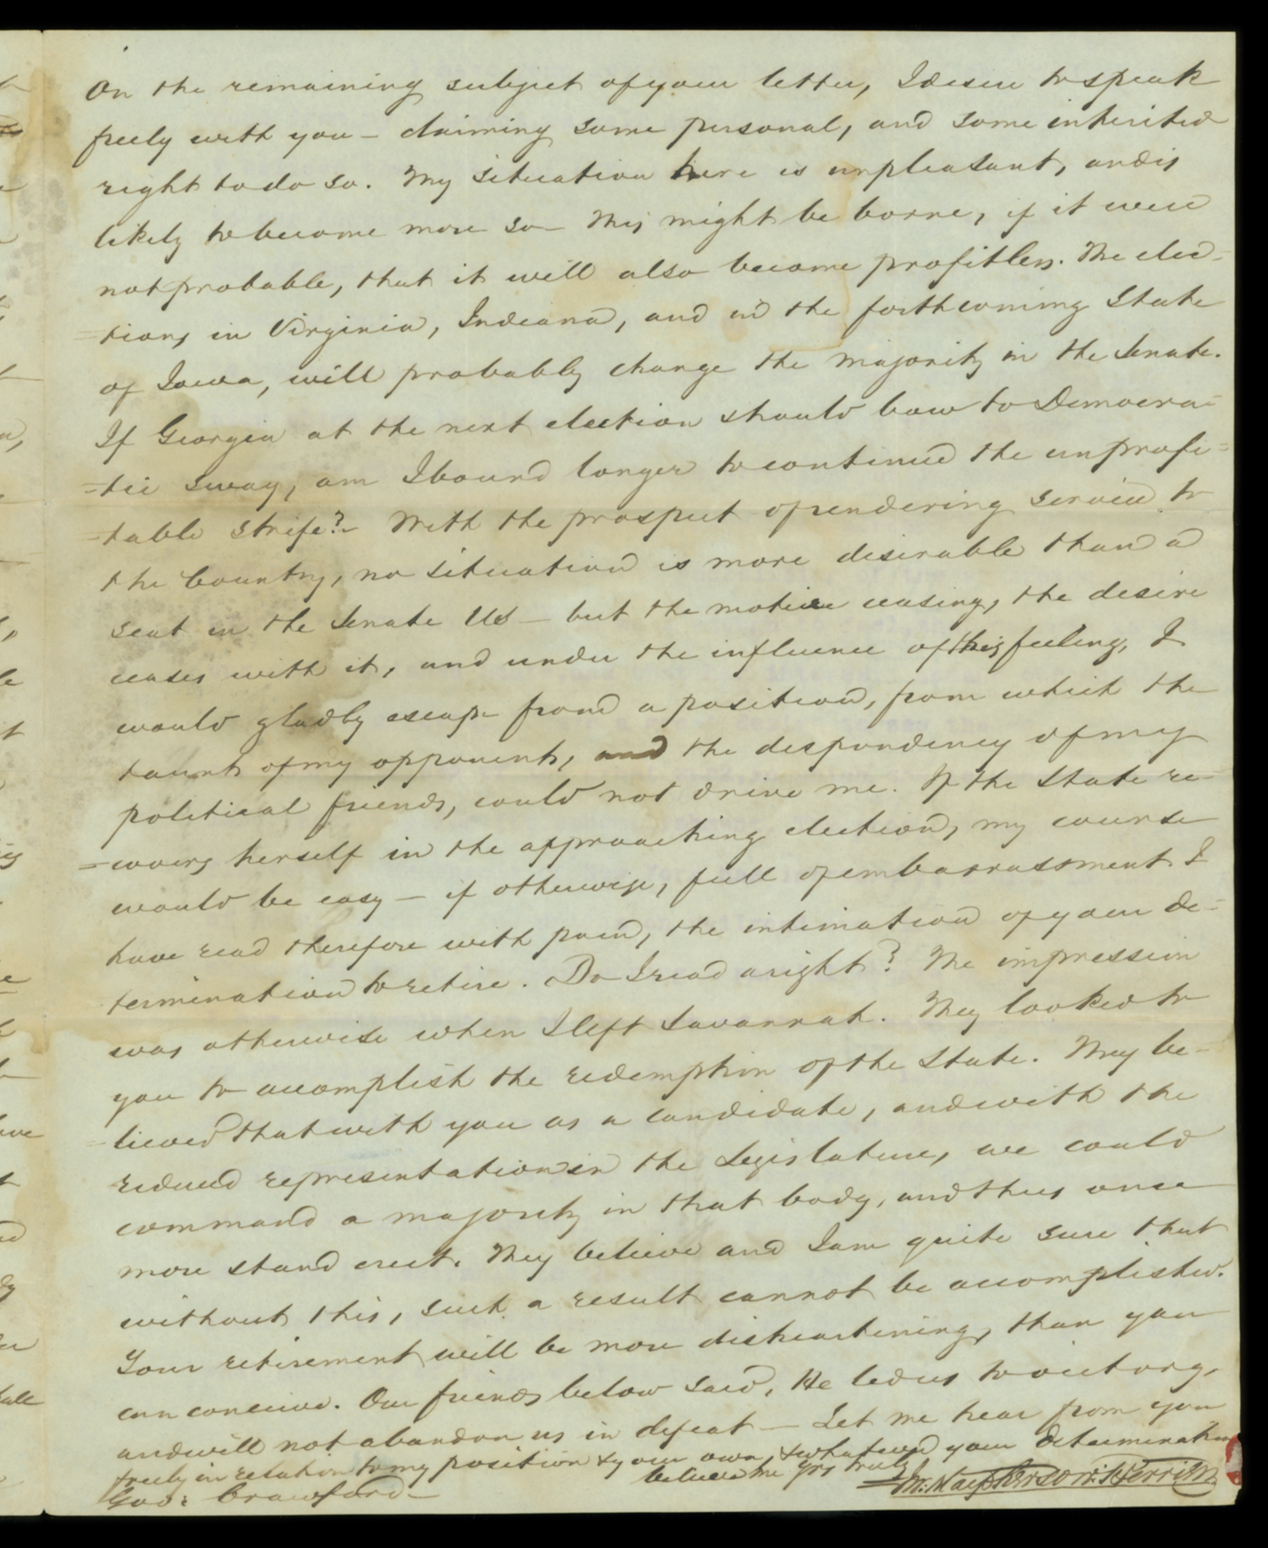 On the remaining subject of your letter, I desire to speak
freely with you – claiming some personal, and some inherited
right to do so. My situation here is unpleasant, and is
likely to become more so – This might be borne, if it were
not probable, that it will also become profitless. The elec=
=tions in Virginia, Indiana, and in the forthcoming State
of Iowa, will probably change the majority in the Senate.
If Georgia at the next election should bow to Democra=
=tic sway, am I bound longer to continue the unprofi=
=table strife? – With the prospect of rendering service to
the Country, no situation is more desirable than a
seat in the Senate US – but the motive ceasing, the desire
ceases with it, and under the influence of this feeling, I
would gladly escape from a position, from which the
taunts of my opponents, and the despondency of my
political friends, could not drive me. If the State re=
=covers herself in the approaching election, my course
would be easy – if otherwise, full of embarrassment I
have read therefore with pain, the intimation of your de=
termination to retire. Do I read aright? The impression
was otherwise when I left Savannah. They looked to
you to accomplish the redemption of the State. They be=
lieved that with you as a candidate, and with the
reduced representation in the Legislature, we could
command a majority in that body, and thus once
more stand erect. They believe and I am quite sure that
without this, such a result cannot be accomplished.
Your retirement will be more disheartening, than you
can conceive. Our friends below said, He led us to victory,
and will not abandon us in defeat – Let me hear from you
freely in relation to my position & your own, & whatever your determination
believe me yrs truly
Jn. Macpherson Berrien
Gov: Crawford –